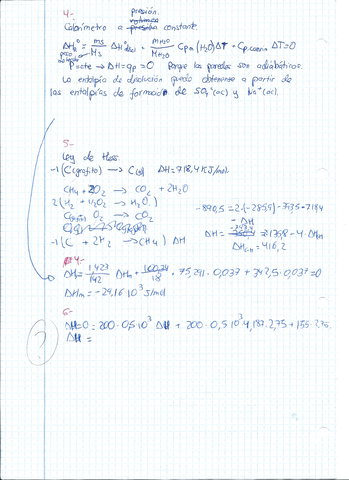 4-
presión.
Calorímetro a constant.
ΔH° = ms/Ms ΔH disol + mH2O/MH2O Cpm (H2O) ΔT + Cp ΔT = 0
P=cte → ΔH = qp = 0 Porque las paredes son adiabáticas.
La entalpía de disolución puede obtenerse a partir de
las entalpías de formación de SO4²⁻(ac) y Na⁺(ac).
5-
Ley de Hess.
-1(C(grafito) → C(g) ΔH = 718,4 KJ/mol.
CH4 + 2O2 → CO2 + 2H2O
2(H2 + 1/2O2 → H2O)
C(grafito) O2 → CO2
-1(C + 2H2 → CH4) ΔH
-890,5 = 2·(-285,9) -393,5 - 718,4
- ΔH
ΔH = - 4·ΔHm
= 416,2
4-
ΔH = 1,423/142 ΔHm + /18 · 75,291 · 0,037 + 342,5 · 0,037 = 0
ΔHm = -24,16 10³ J/mol
6-
ΔH=0 = 200·0,5·10³ ΔH + 200·0,5 10³ 4,187·2,75 + 155·2,75.
ΔH =
?